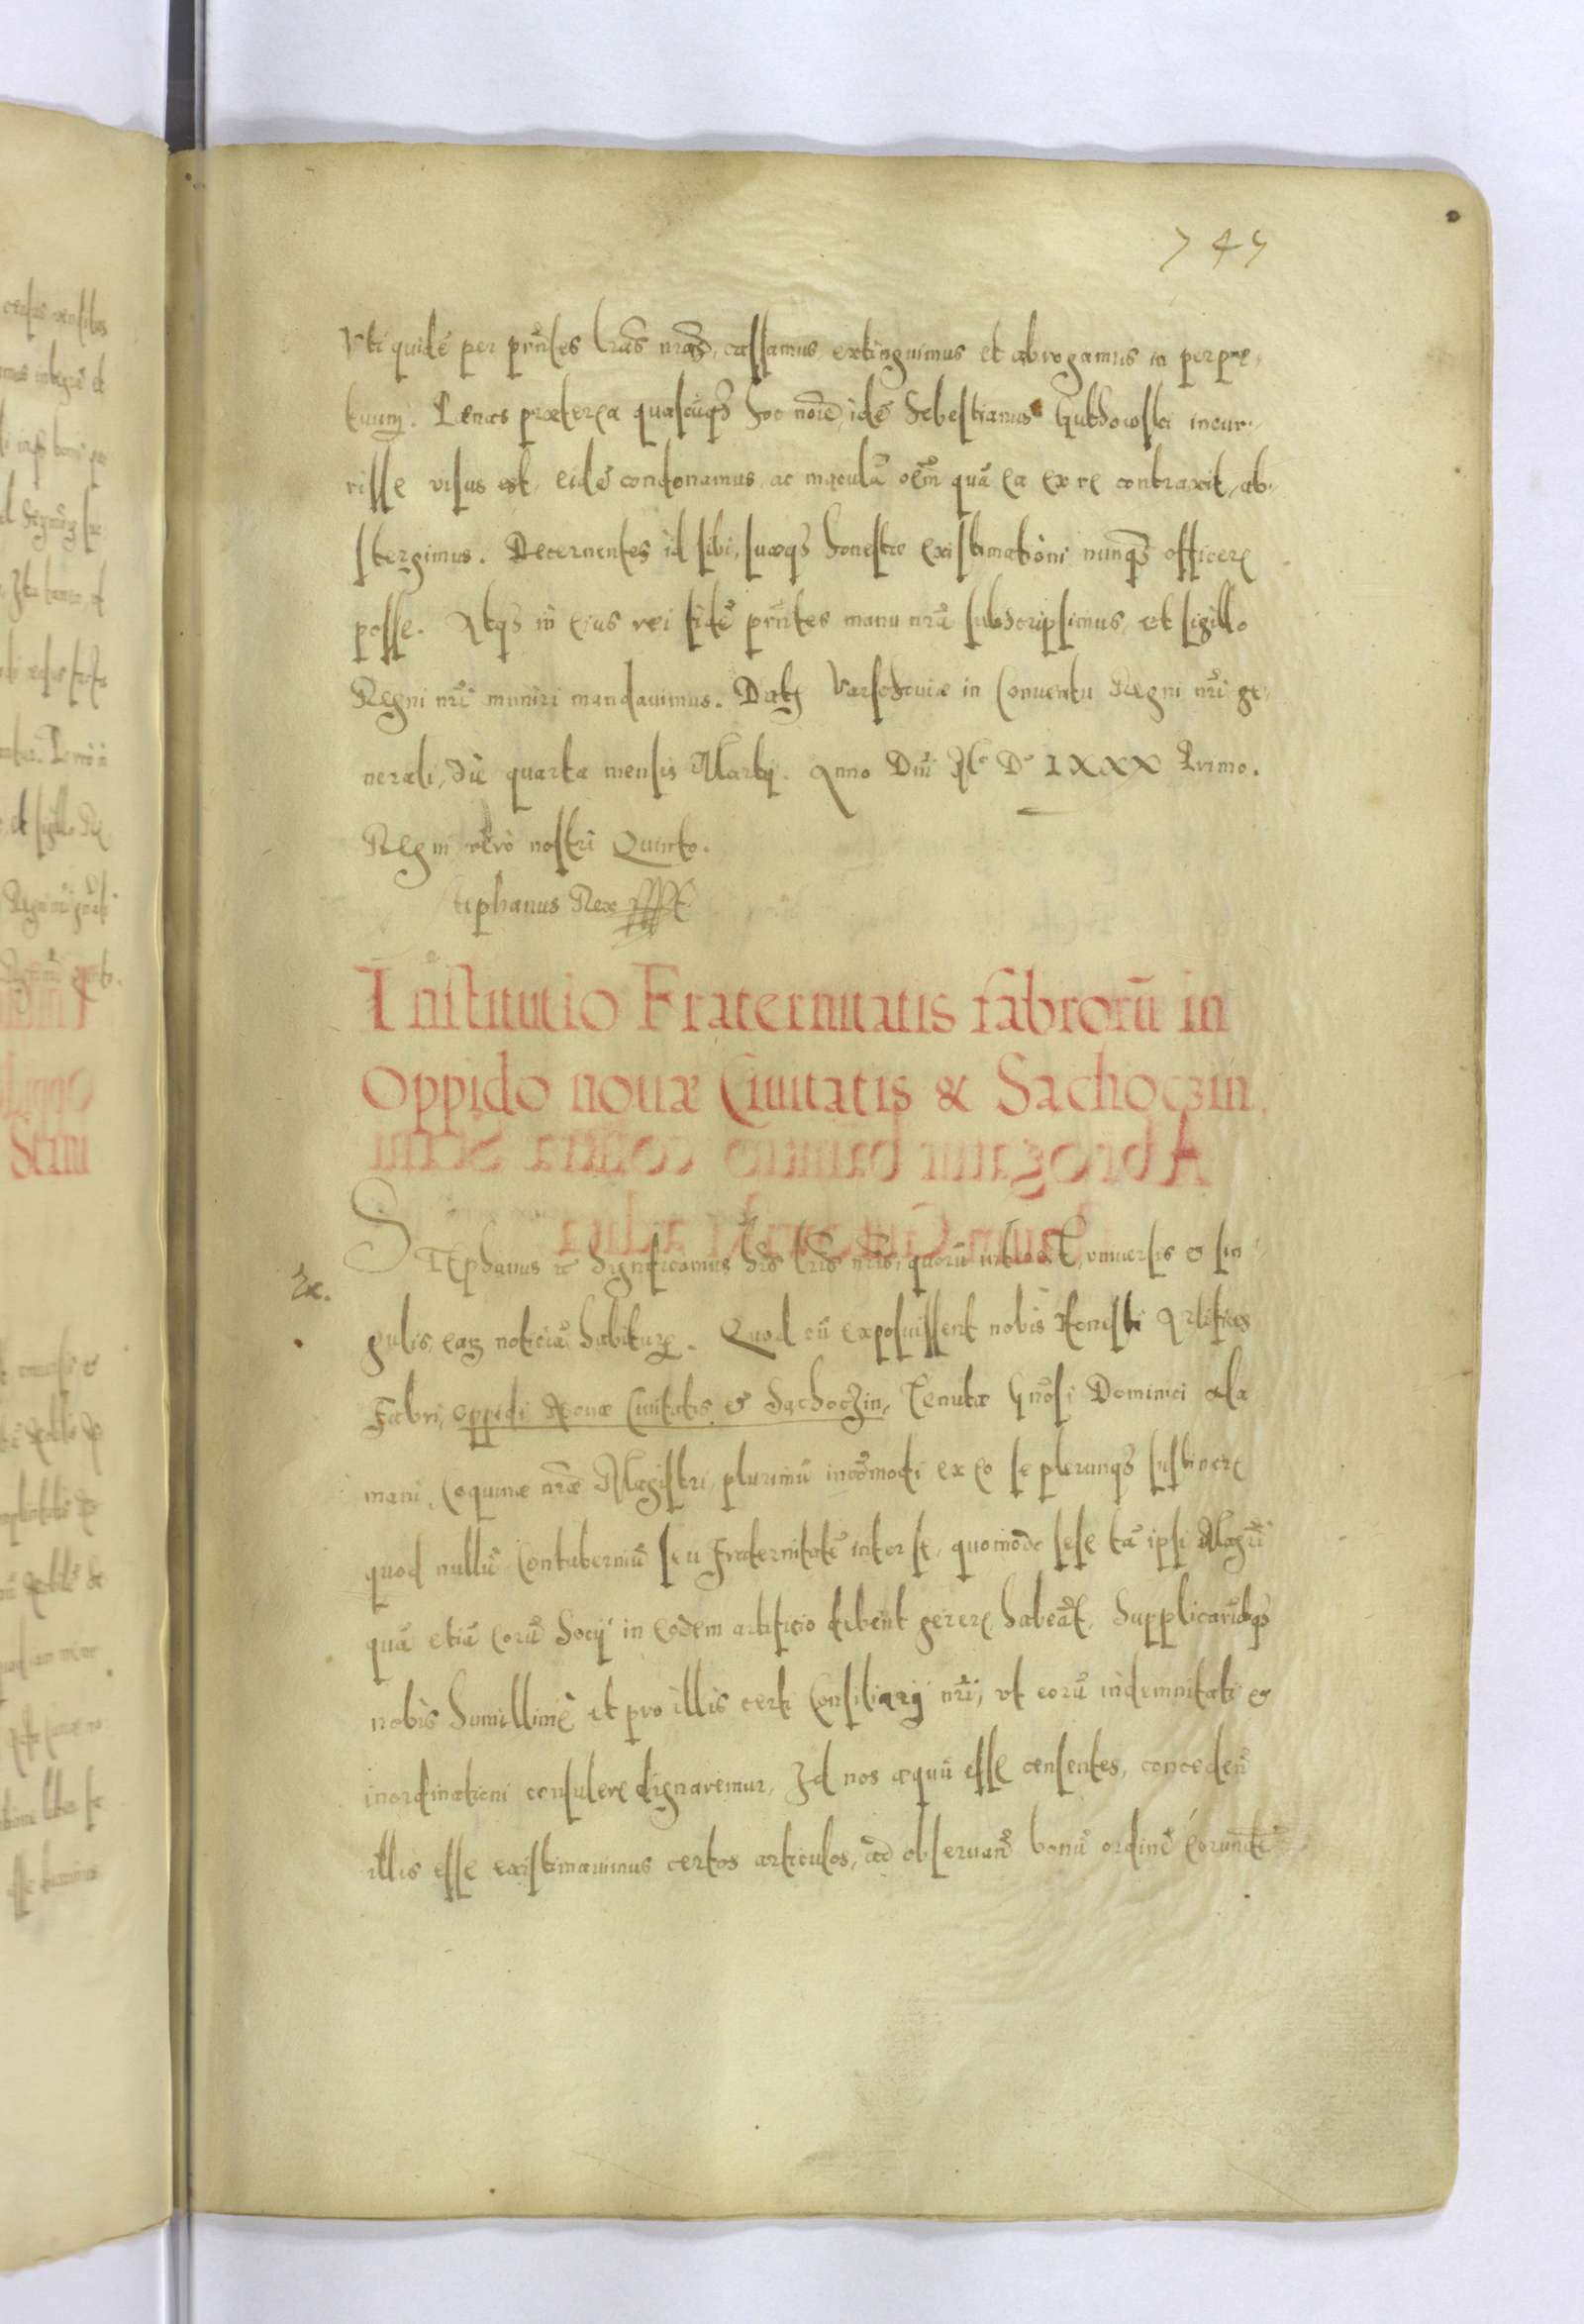 745
Vti quidē per pn̄tes l̄ras nr̄as, cassamus extinguimus et abrogamus in perpe-
tuum. Pœnas præterea quascūqȝ hoc nōīe, idē Sebestianus Guthowski incur-
risse visus est, eidē condonamus, ac maculā oēm̄ quā ea ex re contraxit, ab-
stergimus. Decernentes id sibi, suæqȝ honestæ existimationi nunqȝ officere
posse. Atqȝ in ejus rei fidē pn̄tes manu nr̄a subscripsimus, et sigillo
Regni nr̄i muniri mandauimus. Datȝ Varschouiæ in Conuentu Regni nr̄i ge-
nerali, die quarta mensis Martij. Anno Dn̄i Mº Dº LXXX Primo.
Regni vero nostri Quinto.
Stephanus Rex
Institutio Fraternitatis fabrorū in
Oppido nouæ Ciuitatis & Sachoczin.
STephanus &c Significamus his l̄ris nr̄is, quorū interest, vniuersis & sin-
gulis, eaȝ noticiā habituȝ. Quod cū exposuissent nobis Honesti Artifices
Ex.
Fabri, oppidi Nouæ Ciuitatis & Sachoczin, Tenutæ Gn̄osi Dominici Ala
mani, Coquinæ nr̄æ Magistri, plurimū incōmodi ex eo se plerunqȝ sustinere
quod nullū Contuberniū seu Fraternitatē inter se, quomodo sese tā ipsi Magr̄i
quā etiā eorū Socij in eodem artificio debent gerere, habeāt, Supplicarūtqȝ
nobis humillimè et pro illis certi Consiliarij nr̄i, vt eorū indemnitati &
inordinationi consulere dignaremur, Id nos æquū esse censentes, conceden̄
illis esse existimauimus certos articulos, ad obseruan̄ bonū ordinē eorundē